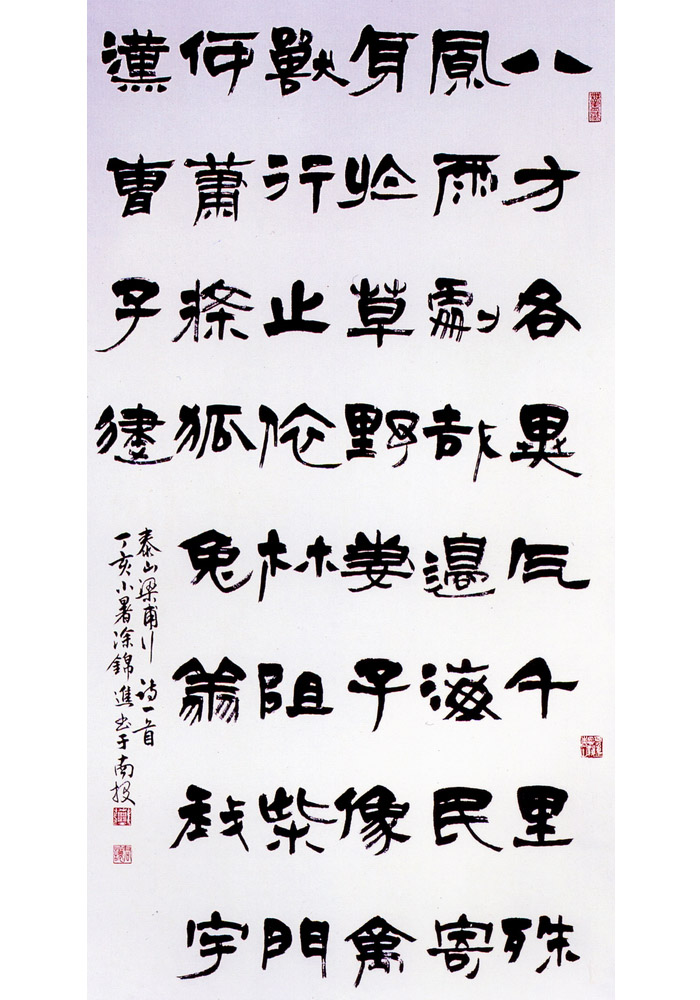 八方各異气千里殊
風雨劇哉邊海民寄
身於草野妻子像禽
獸行止依林阻柴門
何蕭條狐兔翔我宇
漢曹子建
泰山梁甫行 詩一首
丁亥小暑涂錦進書于南投